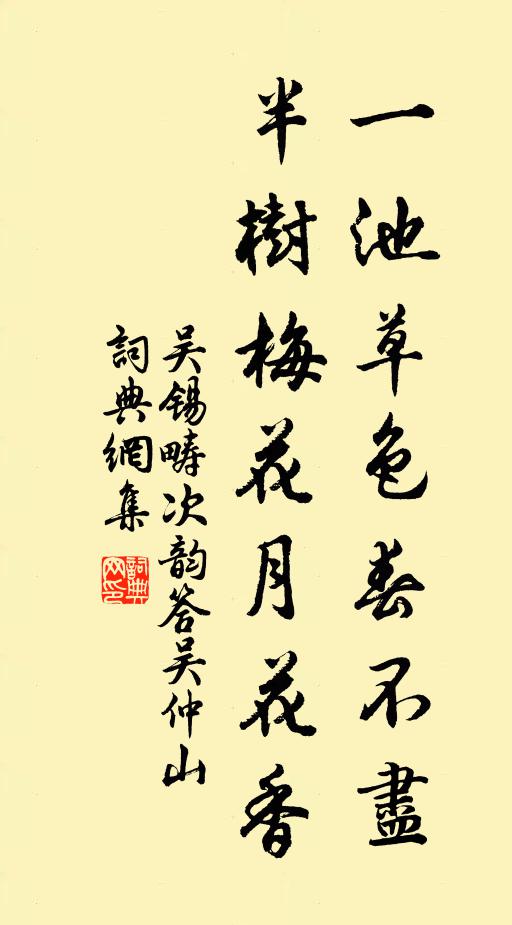 一池草色春不盡
半樹梅花月花香
吴錫疇次韵答吴仲山
詞典網集
詞典网印